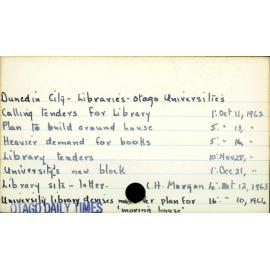 Dunedin City - Libraries - Otago Universities
Calling tenders for Library 1: Oct 11, 1962
Plan to build around house 5: " 13, "
Heavier demand for books 5: "
Library tenders 10: Nov 28, "
University's new block 1: Dec 21, "
Library site - letter - C.H. Morgan 4: Oct 12, 1963
University library devises master plan for 16: " 10, 1964
OTAGO DAILY TIMES 'moving house'